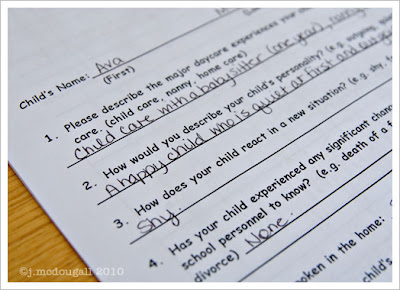 Child's Name: Ava
(First)
1. Please describe the major daycare experiences your
care. (child care, nanny, home care)
Child care with a babysitter (one year),
2. How would you describe your child's personality? (e.g. outgoing, quiet
A happy child who is quiet at first and
3. How does your child react in a new situation? (e.g. shy,
Shy.
4. Has your child experienced any significant chang
school personnel to know? (e.g. death of a f
divorce) None.
oken in the home:
child's
©j.mcdougall 2010